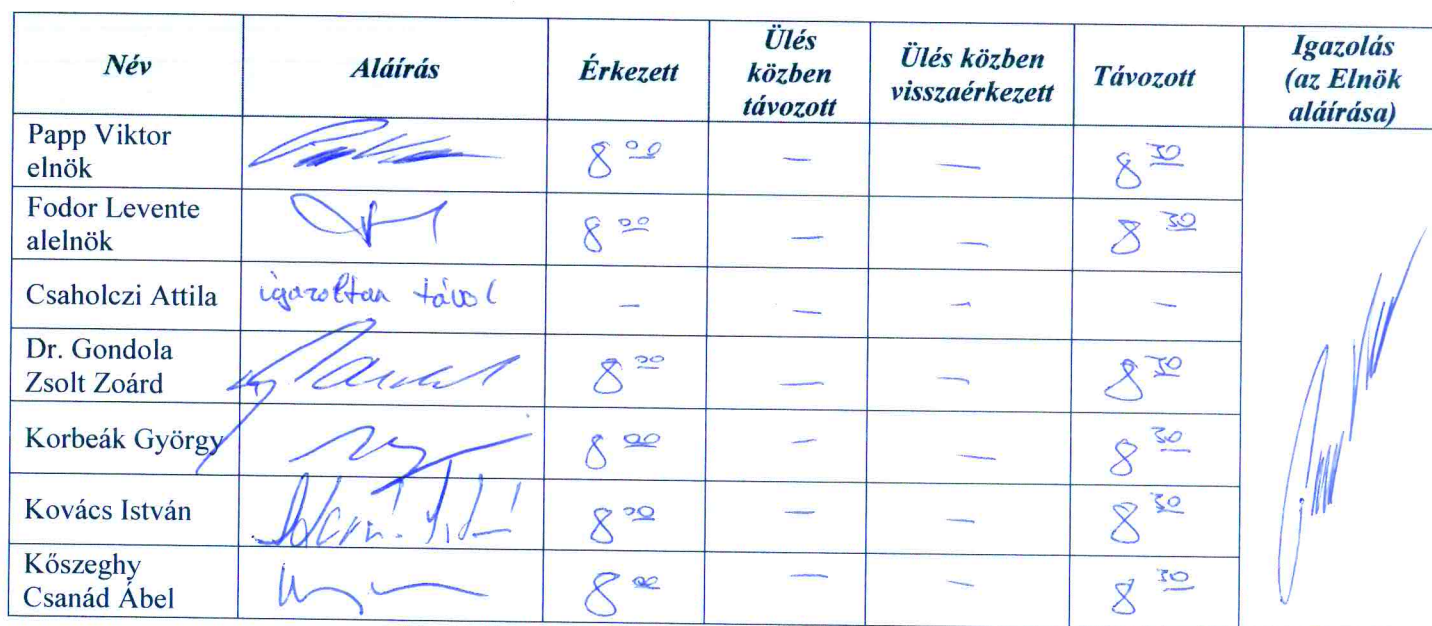 Név Aláírás Érkezett Ülés közben távozott Ülés közben visszaérkezett Távozott Igazolás (az Elnök aláírása)
Papp Viktor elnök 8 00 – – 8 30
Fodor Levente alelnök 8 00 – – 8 30
Csaholczi Attila igazoltan távol – – – –
Dr. Gondola Zsolt Zoárd 8 00 – – 8 30
Korbeák György 8 00 – – 8 30
Kovács István 8 00 – – 8 30
Kőszeghy Csanád Ábel 8 00 – – 8 30